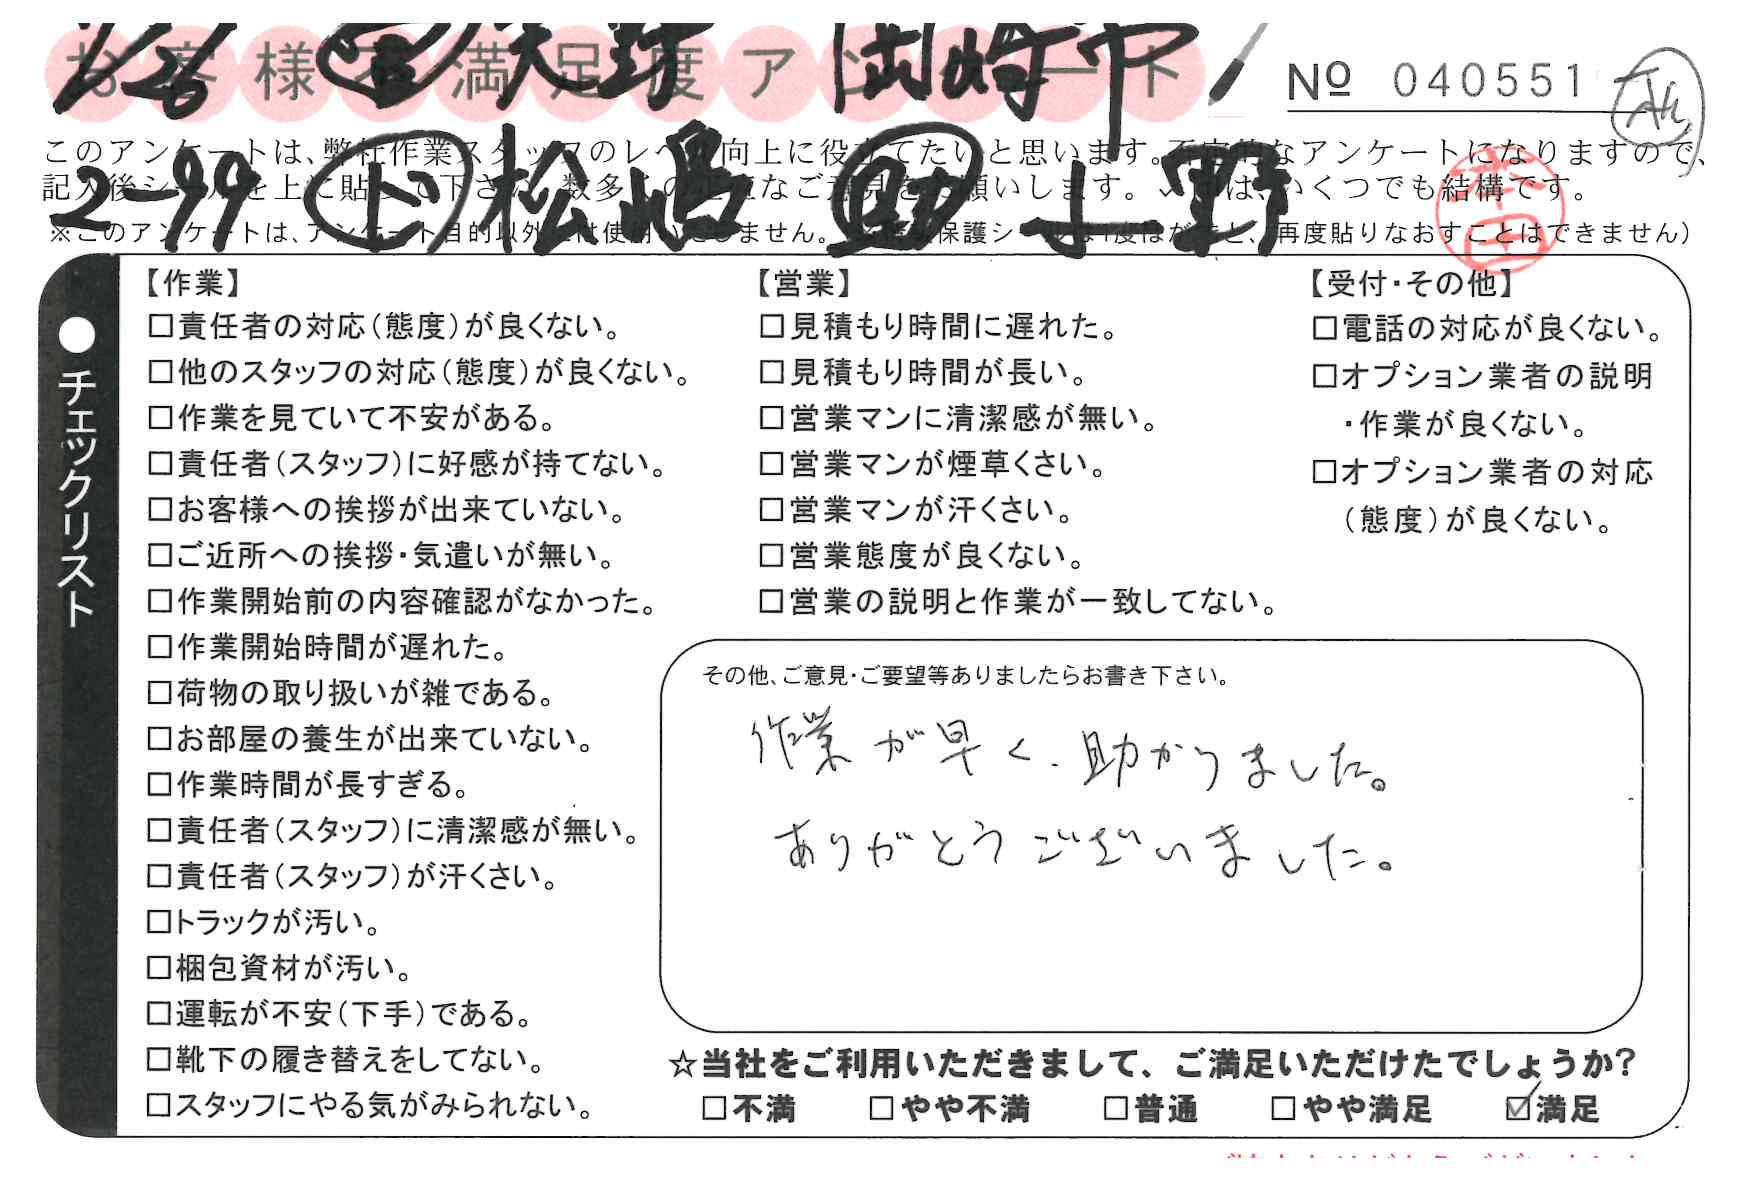 お客様不満足度アンケート
1/26 岡崎市
№ 040551
このアンケートは、弊社作業スタッフのレベル向上に役立てたいと思います。不定的なアンケートになりますので、
記入後シールを上に貼って下さい。数多くの正直なご意見をお願いします。✓印は、いくつでも結構です。
2-99 ド 松嶋 助 小野
※このアンケートは、アンケート目的以外には使用いたしません。 保護シールは1度はがすと、再度貼りなおすことはできません）
●チェックリスト
【作業】
□責任者の対応（態度）が良くない。
□他のスタッフの対応（態度）が良くない。
□作業を見ていて不安がある。
□責任者（スタッフ）に好感が持てない。
□お客様への挨拶が出来ていない。
□ご近所への挨拶・気遣いが無い。
□作業開始前の内容確認がなかった。
□作業開始時間が遅れた。
□荷物の取り扱いが雑である。
□お部屋の養生が出来ていない。
□作業時間が長すぎる。
□責任者（スタッフ）に清潔感が無い。
□責任者（スタッフ）が汗くさい。
□トラックが汚い。
□梱包資材が汚い。
□運転が不安（下手）である。
□靴下の履き替えをしてない。
□スタッフにやる気がみられない。
【営業】
□見積もり時間に遅れた。
□見積もり時間が長い。
□営業マンに清潔感が無い。
□営業マンが煙草くさい。
□営業マンが汗くさい。
□営業態度が良くない。
□営業の説明と作業が一致してない。
【受付・その他】
□電話の対応が良くない。
□オプション業者の説明
・作業が良くない。
□オプション業者の対応
（態度）が良くない。
その他、ご意見・ご要望等ありましたらお書き下さい。
作業が早く、助かりました。
ありがとうございました。
☆当社をご利用いただきまして、ご満足いただけたでしょうか？
□不満 □やや不満 □普通 □やや満足 ☑満足